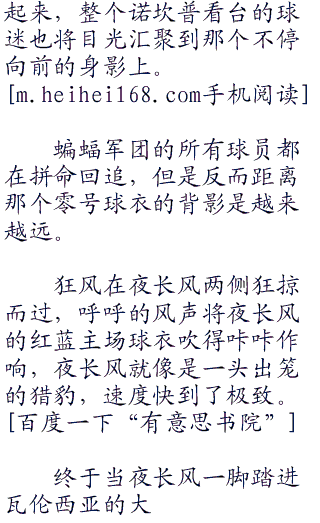 起来，整个诺坎普看台的球
迷也将目光汇聚到那个不停
向前的身影上。
[m.heihei168.com手机阅读]
蝙蝠军团的所有球员都
在拼命回追，但是反而距离
那个零号球衣的背影是越来
越远。
狂风在夜长风两侧狂掠
而过，呼呼的风声将夜长风
的红蓝主场球衣吹得咔咔作
响，夜长风就像是一头出笼
的猎豹，速度快到了极致。
[百度一下“有意思书院”]
终于当夜长风一脚踏进
瓦伦西亚的大